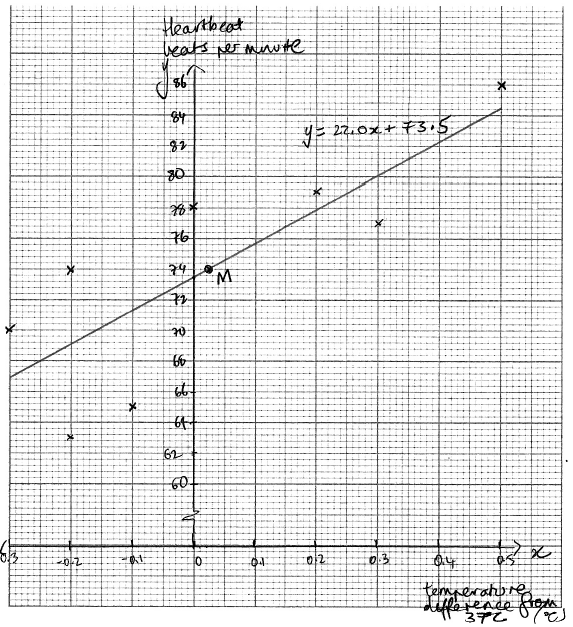 Heartbeat
beats per minute
y
86
84
y = 22.0x + 73.5
82
80
78
76
74
M
72
70
68
66
64
62
60
-0.3 -0.2 -0.1 0 0.1 0.2 0.3 0.4 0.5 x
temperature
difference from
37°C (°C)